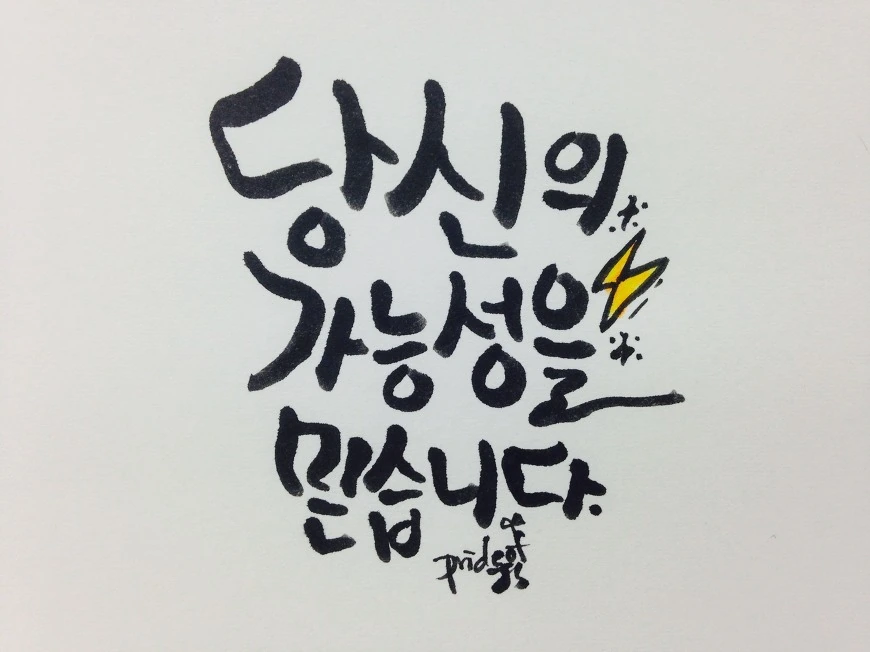 당신의
가능성을
믿습니다.
pride of